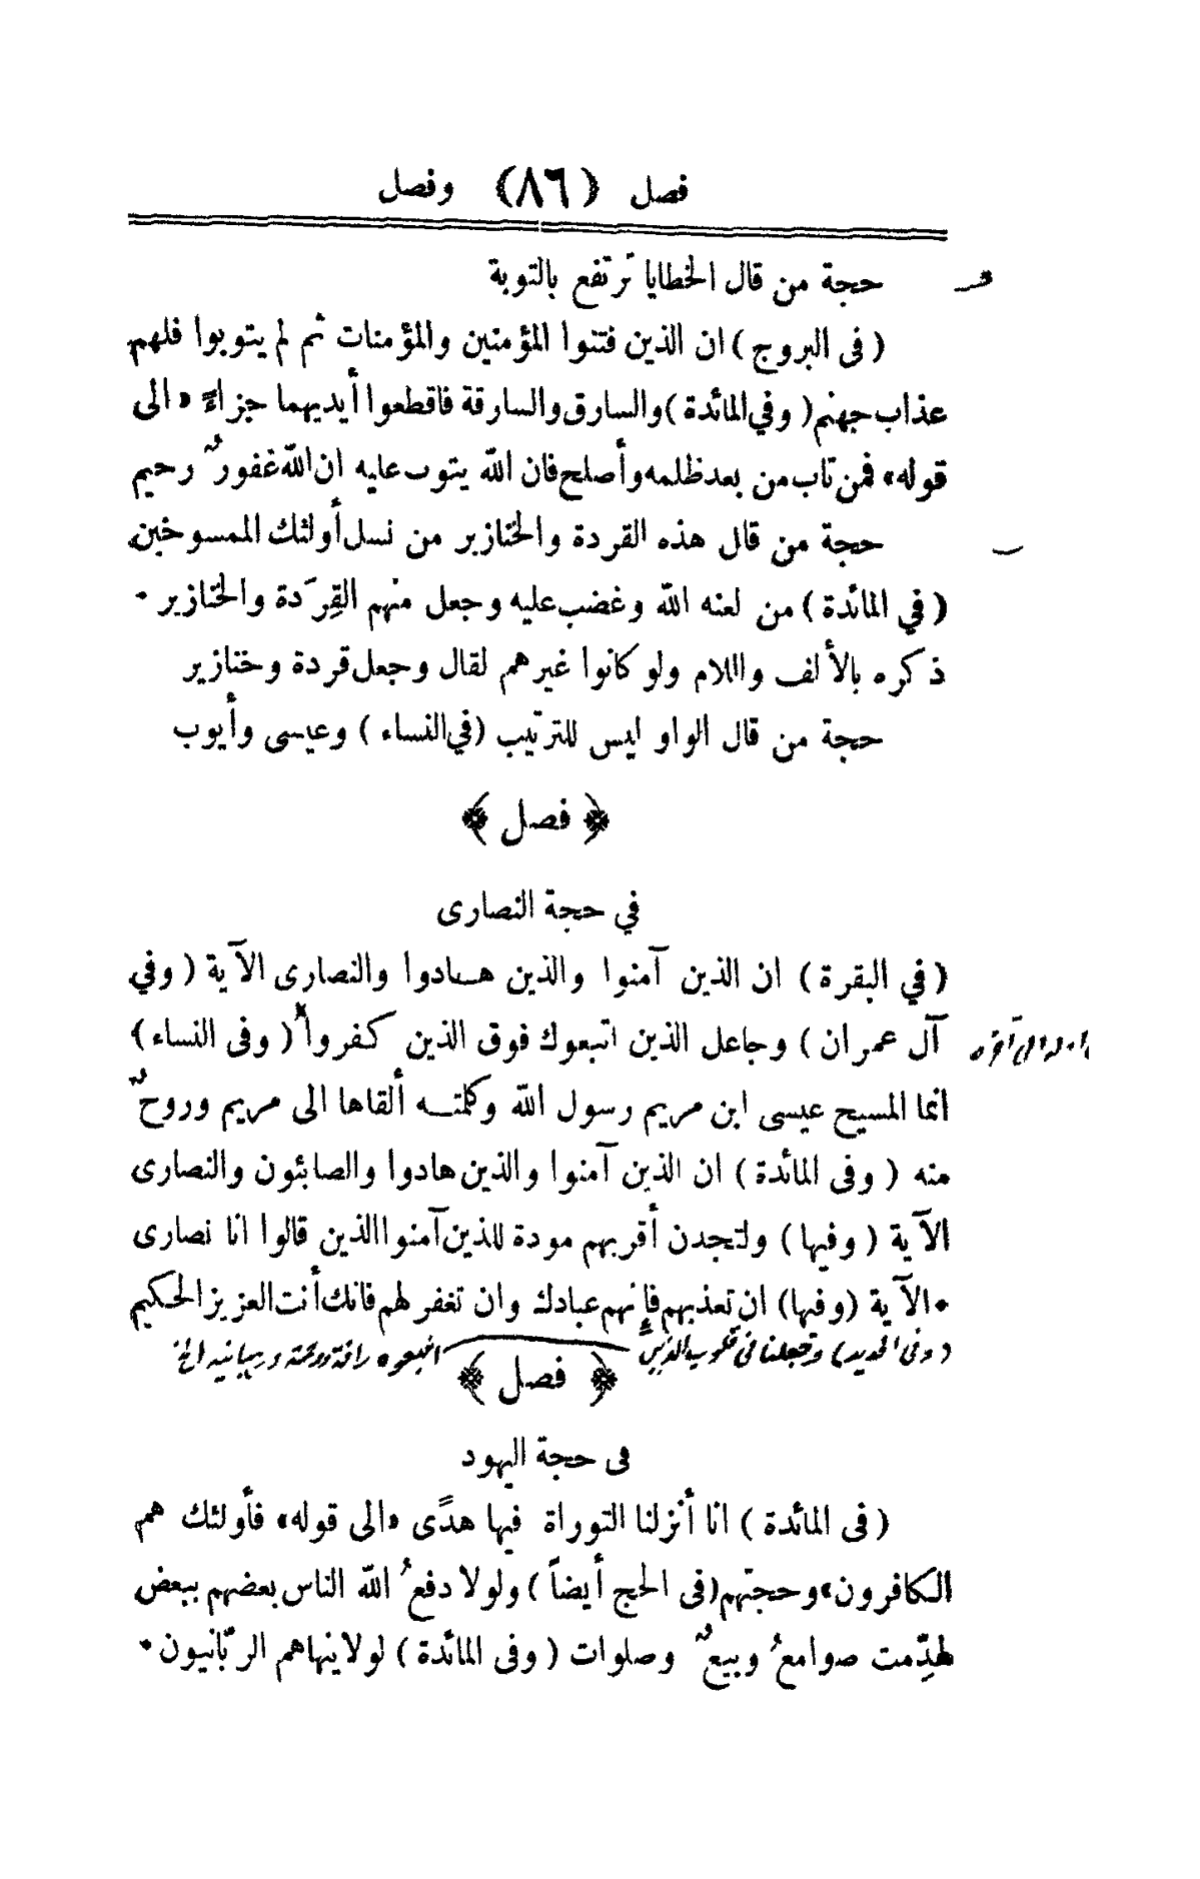 فصل ﴿٨٦﴾ وفصل
حجة من قال الخطايا تَرتفع بالتوبة
( فى البروج ) ان الذين فتنوا المؤمنين والمؤمنات ثم لم يتوبوا فلهم
عذاب جهنم ( وفي المائدة ) والسارق والسارقة فاقطعوا أيديهما جزاءً «الى
قوله» فمن تاب من بعد ظلمه وأصلح فان الله يتوب عليه ان الله غفورٌ رحيم
حجة من قال هذه القردة والخنازير من نسل أولئك الممسوخين
( في المائدة ) من لعنه الله وغضب عليه وجعل منهم القِرَدة والخنازير ٠
ذكره بالألف واللام ولو كانوا غيرهم لقال وجعل قردة وخنازير
حجة من قال الواو ليس للترتيب ( في النساء ) وعيسى وأيوب
﴿ فصل ﴾
في حجة النصارى
( في البقرة ) ان الذين آمنوا والذين هادوا والنصارى الآية ( وفي
آل عمران ) وجاعل الذين اتبعوك فوق الذين كفروا ( وفى النساء )
انما المسيح عيسى ابن مريم رسول الله وكلمته ألقاها الى مريم وروحٌ
منه ( وفى المائدة ) ان الذين آمنوا والذين هادوا والصابئون والنصارى
الآية ( وفيها ) ولتجدن أقربهم مودة للذين آمنوا الذين قالوا انا نصارى
•الآية (وفيها) ان تعذبهم فإِنهم عبادك وان تغفر لهم فانك أنت العزيز الحكيم
( وفى الحديد ) وجعلنا فى قلوب الذين اتبعوه رافة ورحمة ورهبانية الخ
﴿ فصل ﴾
فى حجة اليهود
( فى المائدة ) انا أنزلنا التوراة فيها هدًى «الى قوله» فأولئك هم
الكافرون» وحجتهم (فى الحج أيضاً ) ولولا دفعُ الله الناس بعضهم ببعض
لهدِّمت صوامعُ وبيعٌ وصلوات ( وفى المائدة ) لولا ينهاهم الربّانيون •